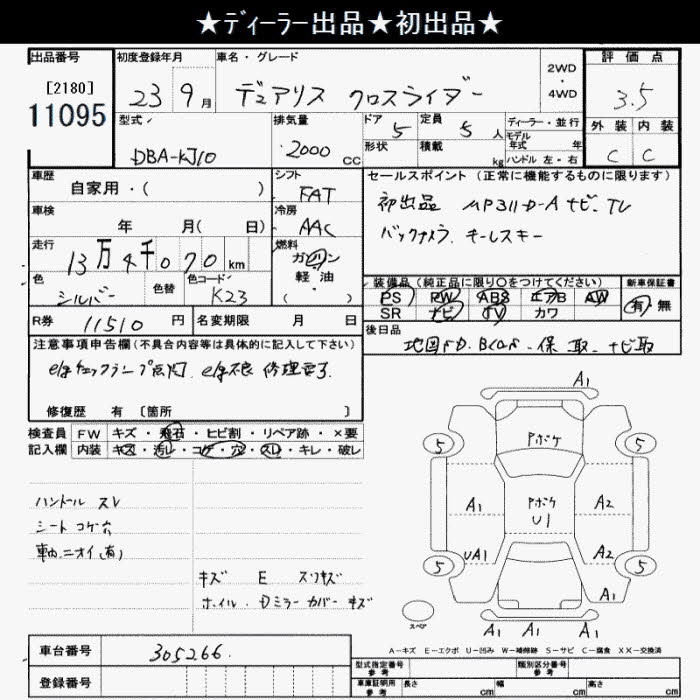 ★ディーラー出品★初出品★
出品番号
[2180]
11095
初度登録年月
23 9月
車名・グレード
デュアリス クロスライダー
2WD
・
4WD
評価点
3.5
外装 内装
C C
型式
DBA-KJ10
排気量
2000 CC
ドア 5
形状
定員 5 人
積載 kg
ディーラー・並行
モデル
年式 年
ハンドル 左・右
車歴
自家用・( )
シフト
FAT
車検
年 月( 日)
冷房
AAC
走行
13万4千070 km
燃料
ガソリン
軽・油
( )
色
シルバー
色替
色コード
K23
R券 11510 円
名変期限 月 日
セールスポイント(正常に機能するものに限ります)
初出品 MP311D-A ナビ、TV
バックカメラ、キーレスキー
装備品(純正品に限り〇をつけてください)
PS PW ABS エアB AW
SR ナビ TV カワ
新車保証書
有・無
後日品
保、取、ナビ取
注意事項申告欄(不具合内容等は具体的に記入して下さい)
e/gチェックランプ点灯、e/g不良 修理要す、
修復歴 有 [箇所 ]
検査員
記入欄
FW キズ・飛石・ヒビ割・リペア跡・×要
内装 キズ・汚レ・コゲ・穴・スレ・キレ・破レ
ハンドル スレ
シート コゲ穴
車内ニオイ(有)
キズ E スリキズ
ホイル、Dミラーカバー キズ
A1
5 Aポケ 5
A1 Aポケ A2
U1
UA1 A2
5 5
A1
スペア
A1 A1 A1
A-キズ E-エクボ U-凹み W-補修跡 S-サビ C-腐食 XX-交換済
車台番号
305266
登録番号
型式指定番号
参考
類別区分番号
参考
車庫証明用
参考
長さ cm
幅 cm
高さ cm